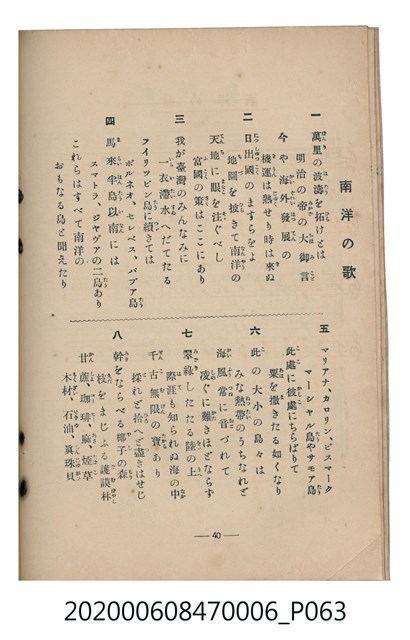 南洋の歌
一
萬里の波濤を拓けとは
明治の帝の大御言
今や海外發展の
機運は熟せり時は來ぬ
二
日出國のますらをよ
地圖を披きて南洋の
天地に眼を注ぐべし
富國の策はここにあり
三
我が臺灣のみんなみに
一衣滯水へだてたる
フイリツピン島に續きては
ボルネオ、セレベス、パプア島
四
馬來半島以南には
スマトラ、ジヤヴアの二島あり
これらはすべて南洋の
おもなる島と聞えたり
五
マリアナ、カロリン、ビスマーク
マーシヤル島やサモア島
此處に彼處にちらばりて
粟を撒きたる如くなり
六
此の大小の島々は
みな熱帶のうちなれど
海風常に音づれて
凌ぐに難きほどならず
七
翠綠したたる陸の上
際涯も知られぬ海の中
千古無限の寶あり
採れど拾へど盡きはせじ
八
幹をならべる椰子の森
枝をまじふる護謨林
甘蔗、珈琲、麻、煙草
木材、石油、眞珠貝
— 40 —
202000608470006_P063